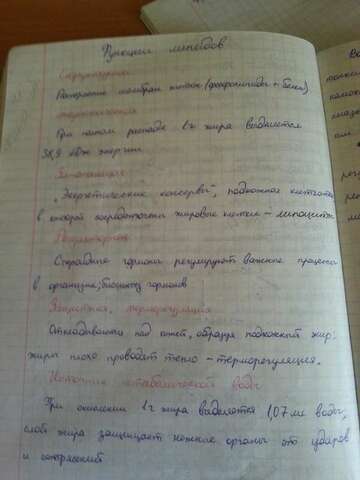 Функции липидов
Структурная
Построение мембран клеток (фосфолипиды + белки)
Энергетическая
При полном распаде 1г жира выделяется
38,9 кДж энергии.
Запасающая
„Энергетические консервы", подкожная клетчатка
в которой сосредоточены жировые клетки – липоциты.
Регуляторная
Стероидные гормоны регулируют важные процессы
в организме; биосинтез гормонов
Защитная, терморегуляция
Откладываются под кожей, образуя подкожный жир;
жиры плохо проводят тепло – терморегуляция.
Источник метаболической воды
При окислении 1г жира выделяется 1,07 мл воды,
слой жира защищает нежные органы от ударов
и сотрясений